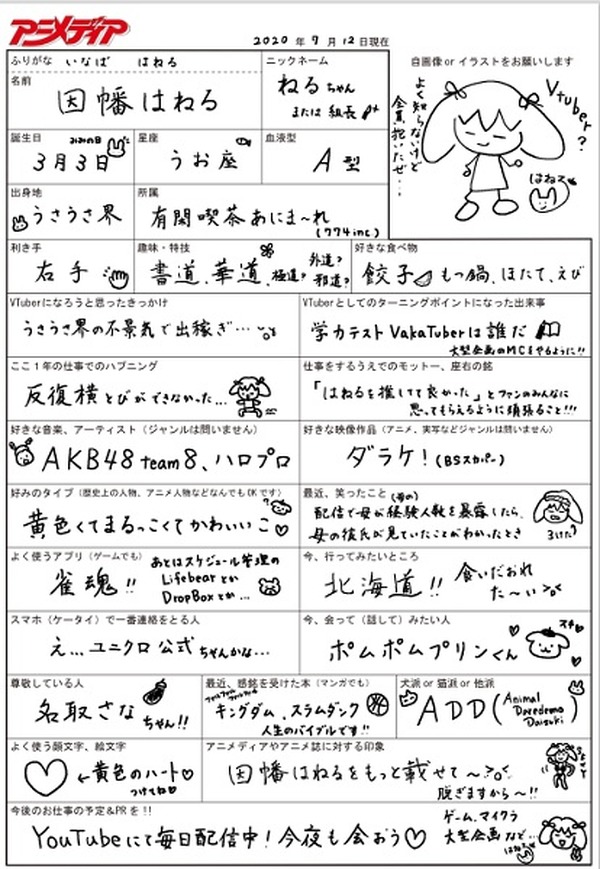 アニメディア
2020年9月12日現在
ふりがな いなば はねる
名前
因幡はねる
ニックネーム
ねるちゃん
または 組長
自画像 or イラストをお願いします
Vtuber?
よく知らないけど
全員抱いたぜ…
はねる
誕生日
みみの日
3月3日
星座
うお座
血液型
A型
出身地
うさうさ界
所属
有閑喫茶あにま~れ
(774inc)
利き手
右手
趣味・特技
書道、華道、極道?
外道?
邪道?
好きな食べ物
餃子 もつ鍋、ほたて、えび
VTuberになろうと思ったきっかけ
うさうさ界の不景気で出稼ぎ…
VTuberとしてのターニングポイントになった出来事
学力テスト VakaTuberは誰だ
大型企画のMCをやるように!!
ここ1年の仕事でのハプニング
反復横とびができなかった…
仕事をするうえでのモットー、座右の銘
「はねるを推してて良かった」とファンのみんなに
思ってもらえるように頑張ること!!!
好きな音楽、アーティスト（ジャンルは問いません）
AKB48 team8、ハロプロ
好きな映像作品（アニメ、実写などジャンルは問いません）
ダラケ!(BSスカパー)
好みのタイプ（歴史上の人物、アニメ人物などなんでもOKです）
黄色くてまるっこくてかわいいこ♡
最近、笑ったこと
(母の)
配信で母が経験人数を暴露したら、
母の彼氏が見ていたことがわかったとき
よく使うアプリ（ゲームでも）
雀魂!!
あとはスケジュール管理の
Lifebearとか
DropBoxとか…
今、行ってみたいところ
北海道!! 食いだおれ
た~い
スマホ（ケータイ）で一番連絡をとる人
え…ユニクロ公式ちゃんかな…
今、会って（話して）みたい人
ポムポムプリンくん
スキ♡
尊敬している人
名取さな
ちゃん!!
最近、感銘を受けた本（マンガでも）
キングダム、スラムダンク
人生のバイブルです!!
犬派 or 猫派 or 他派
ADD (Animal
Daredemo
Daisuki)
よく使う顔文字、絵文字
♡ ←黄色のハート♡
つけてね♡
アニメディアやアニメ誌に対する印象
因幡はねるをもっと載せて~
脱ぎますから~!!
今後のお仕事の予定&PRを!!
YouTubeにて毎日配信中!今夜も会おう♡
ゲーム、マイクラ
大型企画など…
はねる